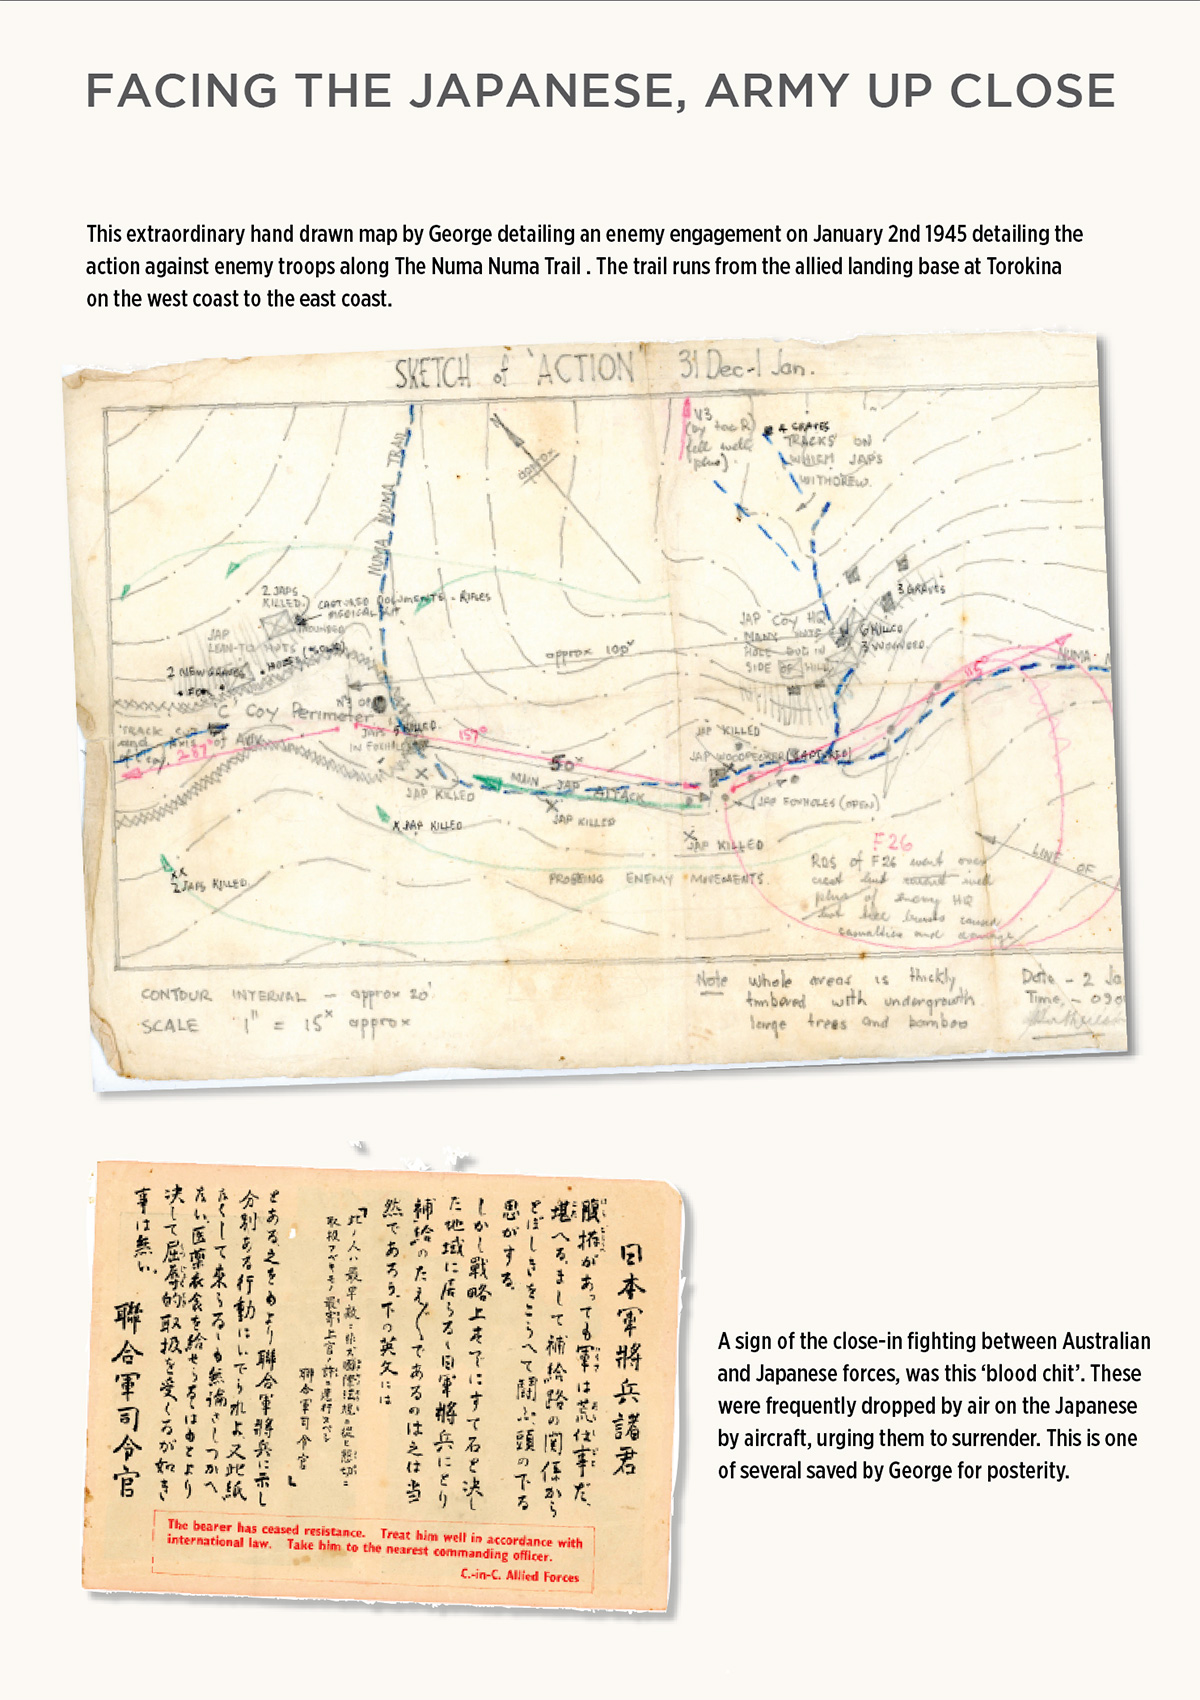 FACING THE JAPANESE, ARMY UP CLOSE
This extraordinary hand drawn map by George detailing an enemy engagement on January 2nd 1945 detailing the
action against enemy troops along The Numa Numa Trail . The trail runs from the allied landing base at Torokina
on the west coast to the east coast.
SKETCH of 'ACTION' 31 Dec-1 Jan.
NUMA NUMA TRAIL
approx
V3
(by tac R)
fell well
plus)
4 GRAVES
TRACKS ON
WHICH JAPS
WITHDREW.
2 JAPS
KILLED.
CAPTURED DOCUMENTS - RIFLES
MEDICAL KIT
JAP
LEAN-TO HUTS
2 NEW GRAVES
'C' Coy Perimeter
237°
KILLED.
IN FOXHOLE
157°
approx
50ˣ
MAIN JAP ATTACK
JAP KILLED
X JAP KILLED
JAP KILLED
2 JAPS KILLED.
JAP KILLED
PROBEING ENEMY MOVEMENTS.
3 GRAVES
JAP COY HQ
SIDE OF HILL
6 KILLED
3 WOUNDED.
115°
NUMA
JAP KILLED
JAP WOODPECKER (CAPTURED)
JAP FOXHOLES (OPEN)
F26
RDS of F26 went over
crest and
plus of enemy HQ
but tree bursts caused
casualties and damage
LINE OF
CONTOUR INTERVAL - approx 20'
SCALE 1" = 15ˣ approx
Note Whole areas is thickly
timbered with undergrowth
large trees and bamboo
Date - 2 Ja
Time, - 090
日本軍將兵諸君
腹拵があっても軍は荒仕事だ、
堪へる、まして補給路の関係から
とぼしきをこらへて闘ふ、頭の下る
思がする。
しかし戦略上すでにすて石と決し
た地域に居らるゝ日軍將兵にとり
補給のたえ〴〵であるのは之は当
然であろう、下の英文には
「此ノ人ハ最早敵ニ非ズ國際法規ニ從ヒ懇切ニ
取扱フベキモノ最寄上官ノ許ニ連行スベシ
聯合軍司令官」
とある、之をもより聯合軍將兵に示し
分別ある行動にいでられよ、又此紙
なくして来らるゝも無論さしつかへ
ない、医薬衣食を給せらるゝはもとより
決して屈辱的取扱を受くるが如き
事は無い。
聯合軍司令官
The bearer has ceased resistance. Treat him well in accordance with
international law. Take him to the nearest commanding officer.
C.-in-C. Allied Forces
A sign of the close-in fighting between Australian
and Japanese forces, was this ‘blood chit’. These
were frequently dropped by air on the Japanese
by aircraft, urging them to surrender. This is one
of several saved by George for posterity.